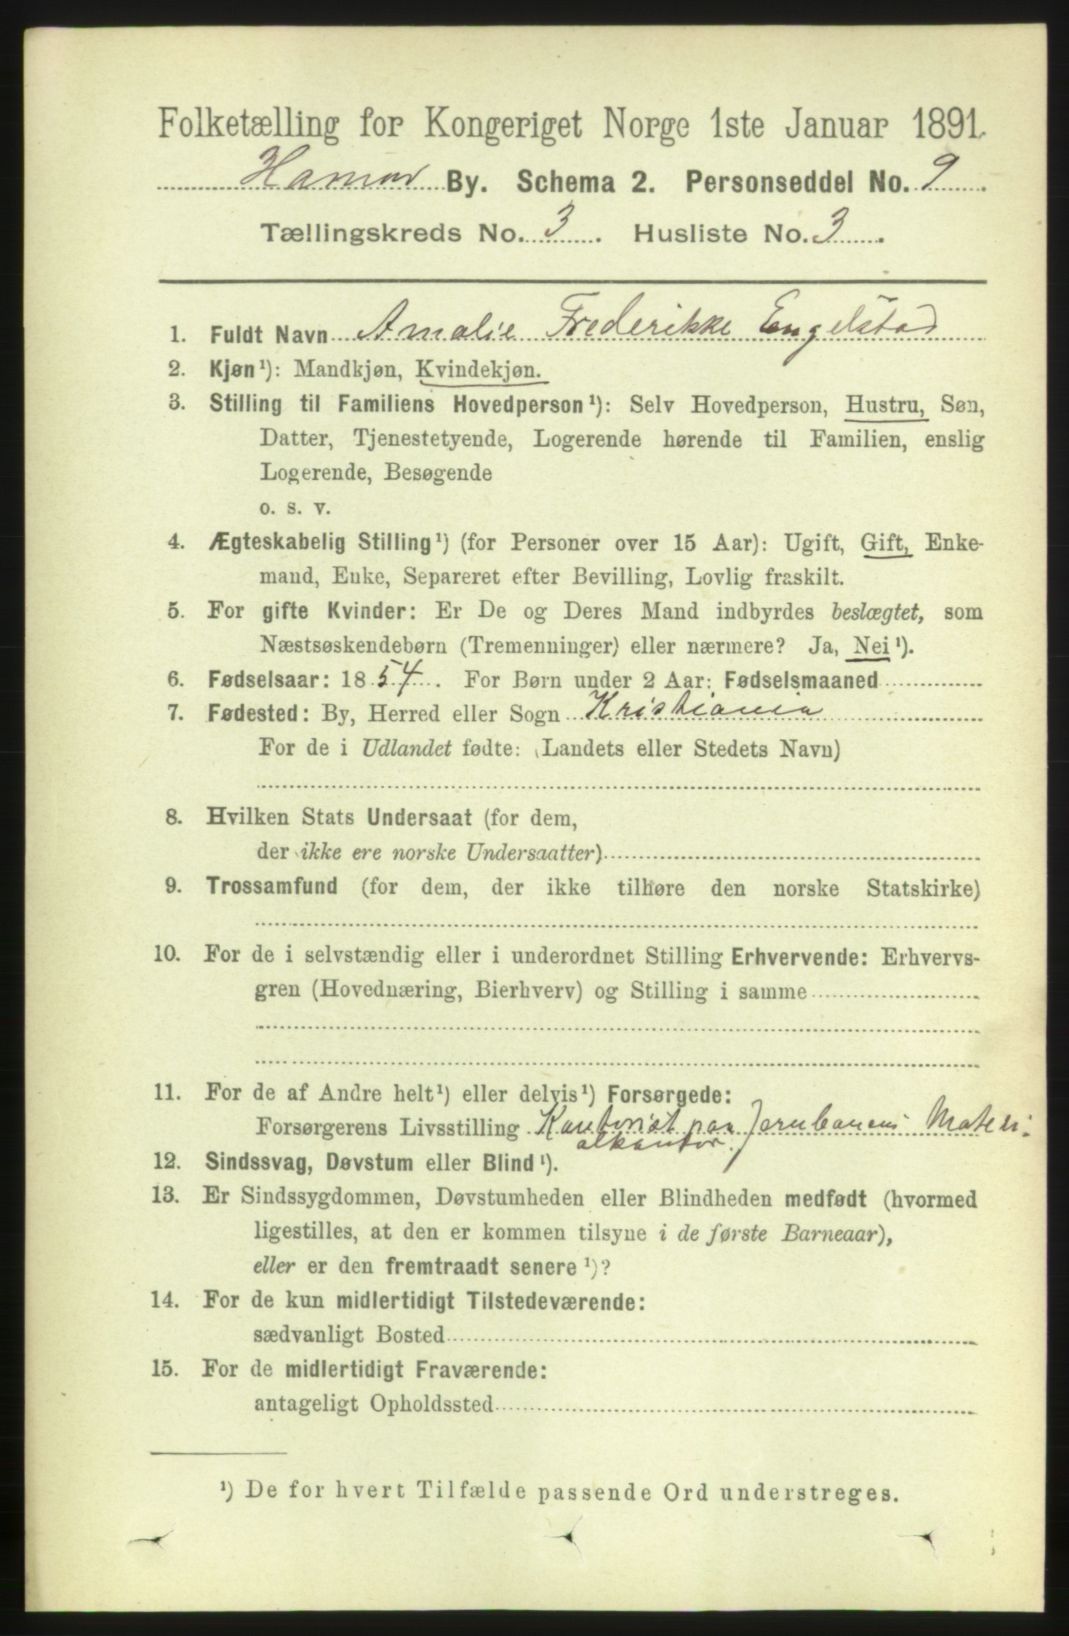 Folketælling for Kongeriget Norge 1ste Januar 1891.
Hamar By. Schema 2. Personseddel No. 9.
Tællingskreds No. 3. Husliste No. 3.
1. Fuldt Navn Amalie Frederikke Engelstad
2. Kjøn¹): Mandkjøn, Kvindekjøn.
3. Stilling til Familiens Hovedperson¹): Selv Hovedperson, Hustru, Søn,
Datter, Tjenestetyende, Logerende hørende til Familien, enslig
Logerende, Besøgende
o. s. v.
4. Ægteskabelig Stilling¹) (for Personer over 15 Aar): Ugift, Gift, Enke-
mand, Enke, Separeret efter Bevilling, Lovlig fraskilt.
5. For gifte Kvinder: Er De og Deres Mand indbyrdes beslægtet, som
Næstsøskendebørn (Tremenninger) eller nærmere? Ja, Nei¹).
6. Fødselsaar: 1854. For Børn under 2 Aar: Fødselsmaaned
7. Fødested: By, Herred eller Sogn Kristiania
For de i Udlandet fødte: (Landets eller Stedets Navn)
8. Hvilken Stats Undersaat (for dem,
der ikke ere norske Undersaatter)
9. Trossamfund (for dem, der ikke tilhøre den norske Statskirke)
10. For de i selvstændig eller i underordnet Stilling Erhvervende: Erhvervs-
gren (Hovednæring, Bierhverv) og Stilling i samme
11. For de af Andre helt¹) eller delvis¹) Forsørgede:
Forsørgerens Livsstilling Kontorist paa Jernbanens Materi-
alkontor.
12. Sindssvag, Døvstum eller Blind¹).
13. Er Sindssygdommen, Døvstumheden eller Blindheden medfødt (hvormed
ligestilles, at den er kommen tilsyne i de første Barneaar),
eller er den fremtraadt senere¹)?
14. For de kun midlertidigt Tilstedeværende:
sædvanligt Bosted
15. For de midlertidigt Fraværende:
antageligt Opholdssted
¹) De for hvert Tilfælde passende Ord understreges.